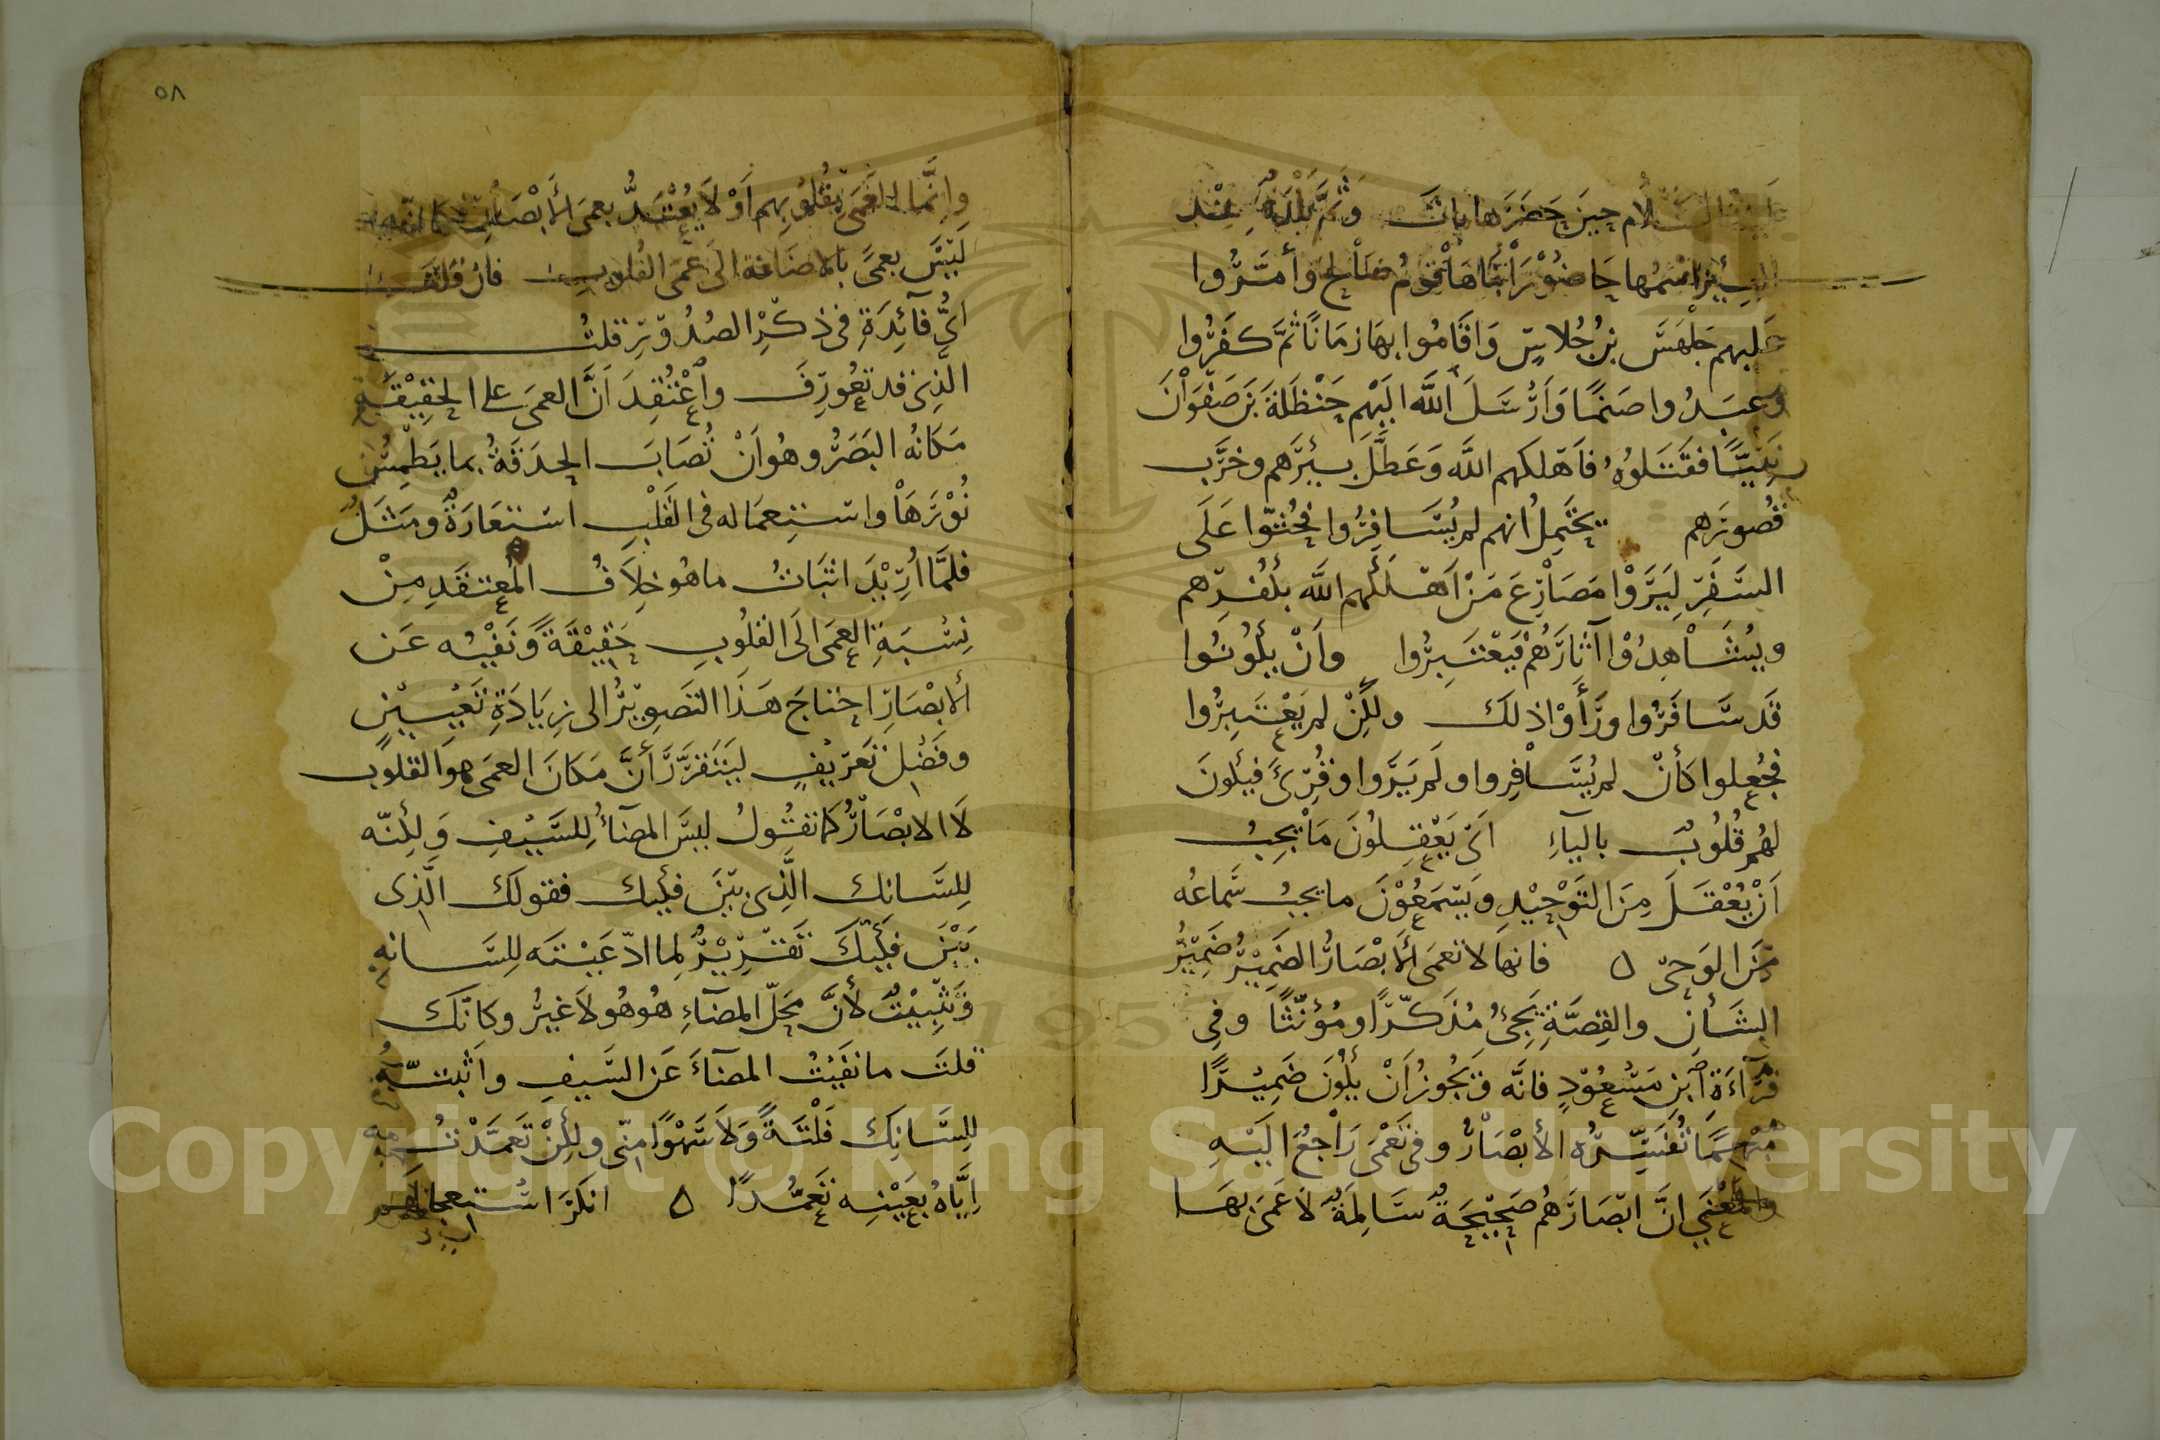 عليه السلام حين حضرها مات وثَمَّ بَلْدَةٌ عِنْد
البِئْرِ اسْمُها حَاضُوْرَا بَنَاهَا قَوْمُ صَالِح وَأمَّرُوا
عَليهم جَلْهَسَ بنَ جُلاسٍ وَاَقَامُوا بِهَا زمَانًا ثمَّ كَفَرُوا
وعبَدُوا صَنَمًا وَاَرْسَلَ اللَّه اليَهْم حَنْظَلَةَ بنَ صَفْوَانَ
نَبِيًّا فقَتَلوُهُ فاَهْلكهم اللَّه وَعَطَّلَ بِئرَهم وخرَّب
قُصورَهم يَحْتَمِلُ انهم لم يُسَافِرُوا فحُثّوا عَلَى
السَفَرِ لِيَرَوْا مَصَارِعَ مَنْ اَهْلَكَهم اللَّه بكُفْرِهم
ويُشَاهِدُوْا آثارَهُم فيَعْتَبِرُوا وأنْ يكُونُوا
قَد سَافَرُوا ورَأَوْا ذلك ولكِنْ لم يَعْتَبِرُوا
فجُعِلوا كأنْ لم يُسَافِروا ولَم يَرَوا وقُرِئَ فيكونَ
لهُم قُلُوبٌ بالياءِ اَىْ يَعْقِلُونَ مَا يجِبُ
اَنْ يُعْقَلَ مِنَ التَوْحِيْدِ ويَسْمَعُوْنَ ما يجبُ سَماعُه
مِنَ الوَحىِ ٥ فانها لا تعمَى الأَبْصَارُ الضَمِيْرُ ضَمِيْرُ
الشَأنِ والقِصَّةِ يَجئُ مُذَكَّرًا ومُؤنَّثًا وفي
قِرَآءَةِ ابنِ مَسْعُوْدٍ فانَّه وَيَجُوزُ اَنْ يكُوْنَ ضَمِيْرًا
مُبْهَمًا تُفسّرُه الأبْصَارُ وفي تَعْمَى رَاجعُ اليَهِ
والمَعْنَى انَّ ابْصَارَهُم صَحِيْحَةٌ سَالِمَةٌ لاَ عَمَىَ بِهَا
وانَّمَا العَمَىَ بِقُلوُبِهم اَوْ لاَ يُعْتَدُّ بعمَىَ الأَبْصَارِ فكانّه
لَيْسَ بِعمًى بالاضَافة الىَ عَمَى القُلوبِ فان قلتَ
اَىُّ فآئِدَةٍ فىِ ذكْرِ الصُدُوْرِ قلتُ
الَّذِىْ قد تُعُوْرِفَ وٱعْتُقِدَ اَنَّ العمَى علىَ الحَقِيْقَةِ
مَكَانُه البَصَرُ وهُو اَنْ تُصَابَ الحدَقَةُ بما يَطْمِسُ
نُوْرَهَا واسْتِعمَاله فى القَلْبِ اسْتعَارَةٌ ومَثَلٌ
فلمَّا اُرِيْدَ اثبَاتُ ما هُو خِلاَفُ المُعتقَدِ مِنْ
نِسْبَةِ العمَى الىَ القلوُبِ حَقِيْقَةً ونَفْيُه عَن
الأبْصَارِ احْتاجَ هَذَا التَصويْرُ الى زِيَادَةِ تَعْيِيْنٍ
وفَضْلِ تَعْرِيْفٍ ليَتَقرَّرَ أنَّ مَكَانَ العمَى هوَ القلوب
لاَ الابْصَارُ كما تقُولُ ليسَ المضآءُ لِلسَّيْفِ وَلكِنّه
لِلسَانك الَّذِى بَيْنَ فكيّك فقولك الَّذِى
بَيْنَ فكَيْكَ تَقرِيْرٌ لِما ادّعَيْتَه لِلسَانه
وَتثْبِيْتٌ لأنَّ مَحَلّ المضآءِ هُوهُو لاَ غيرُ وكانّك
قلتَ ما نفَيْتُ المضآءَ عَن السَيفِ واَثبتّه
للِسَانِكَ فَلْتَةً وَلاَ سَهْوًا مِنّى ولكِنْ تَعَمَّدْتُ به
اِيَّاهُ بِعَيْنِه تَعَمُّدًا ٥ انكَرَ اسْتِعجالَهم